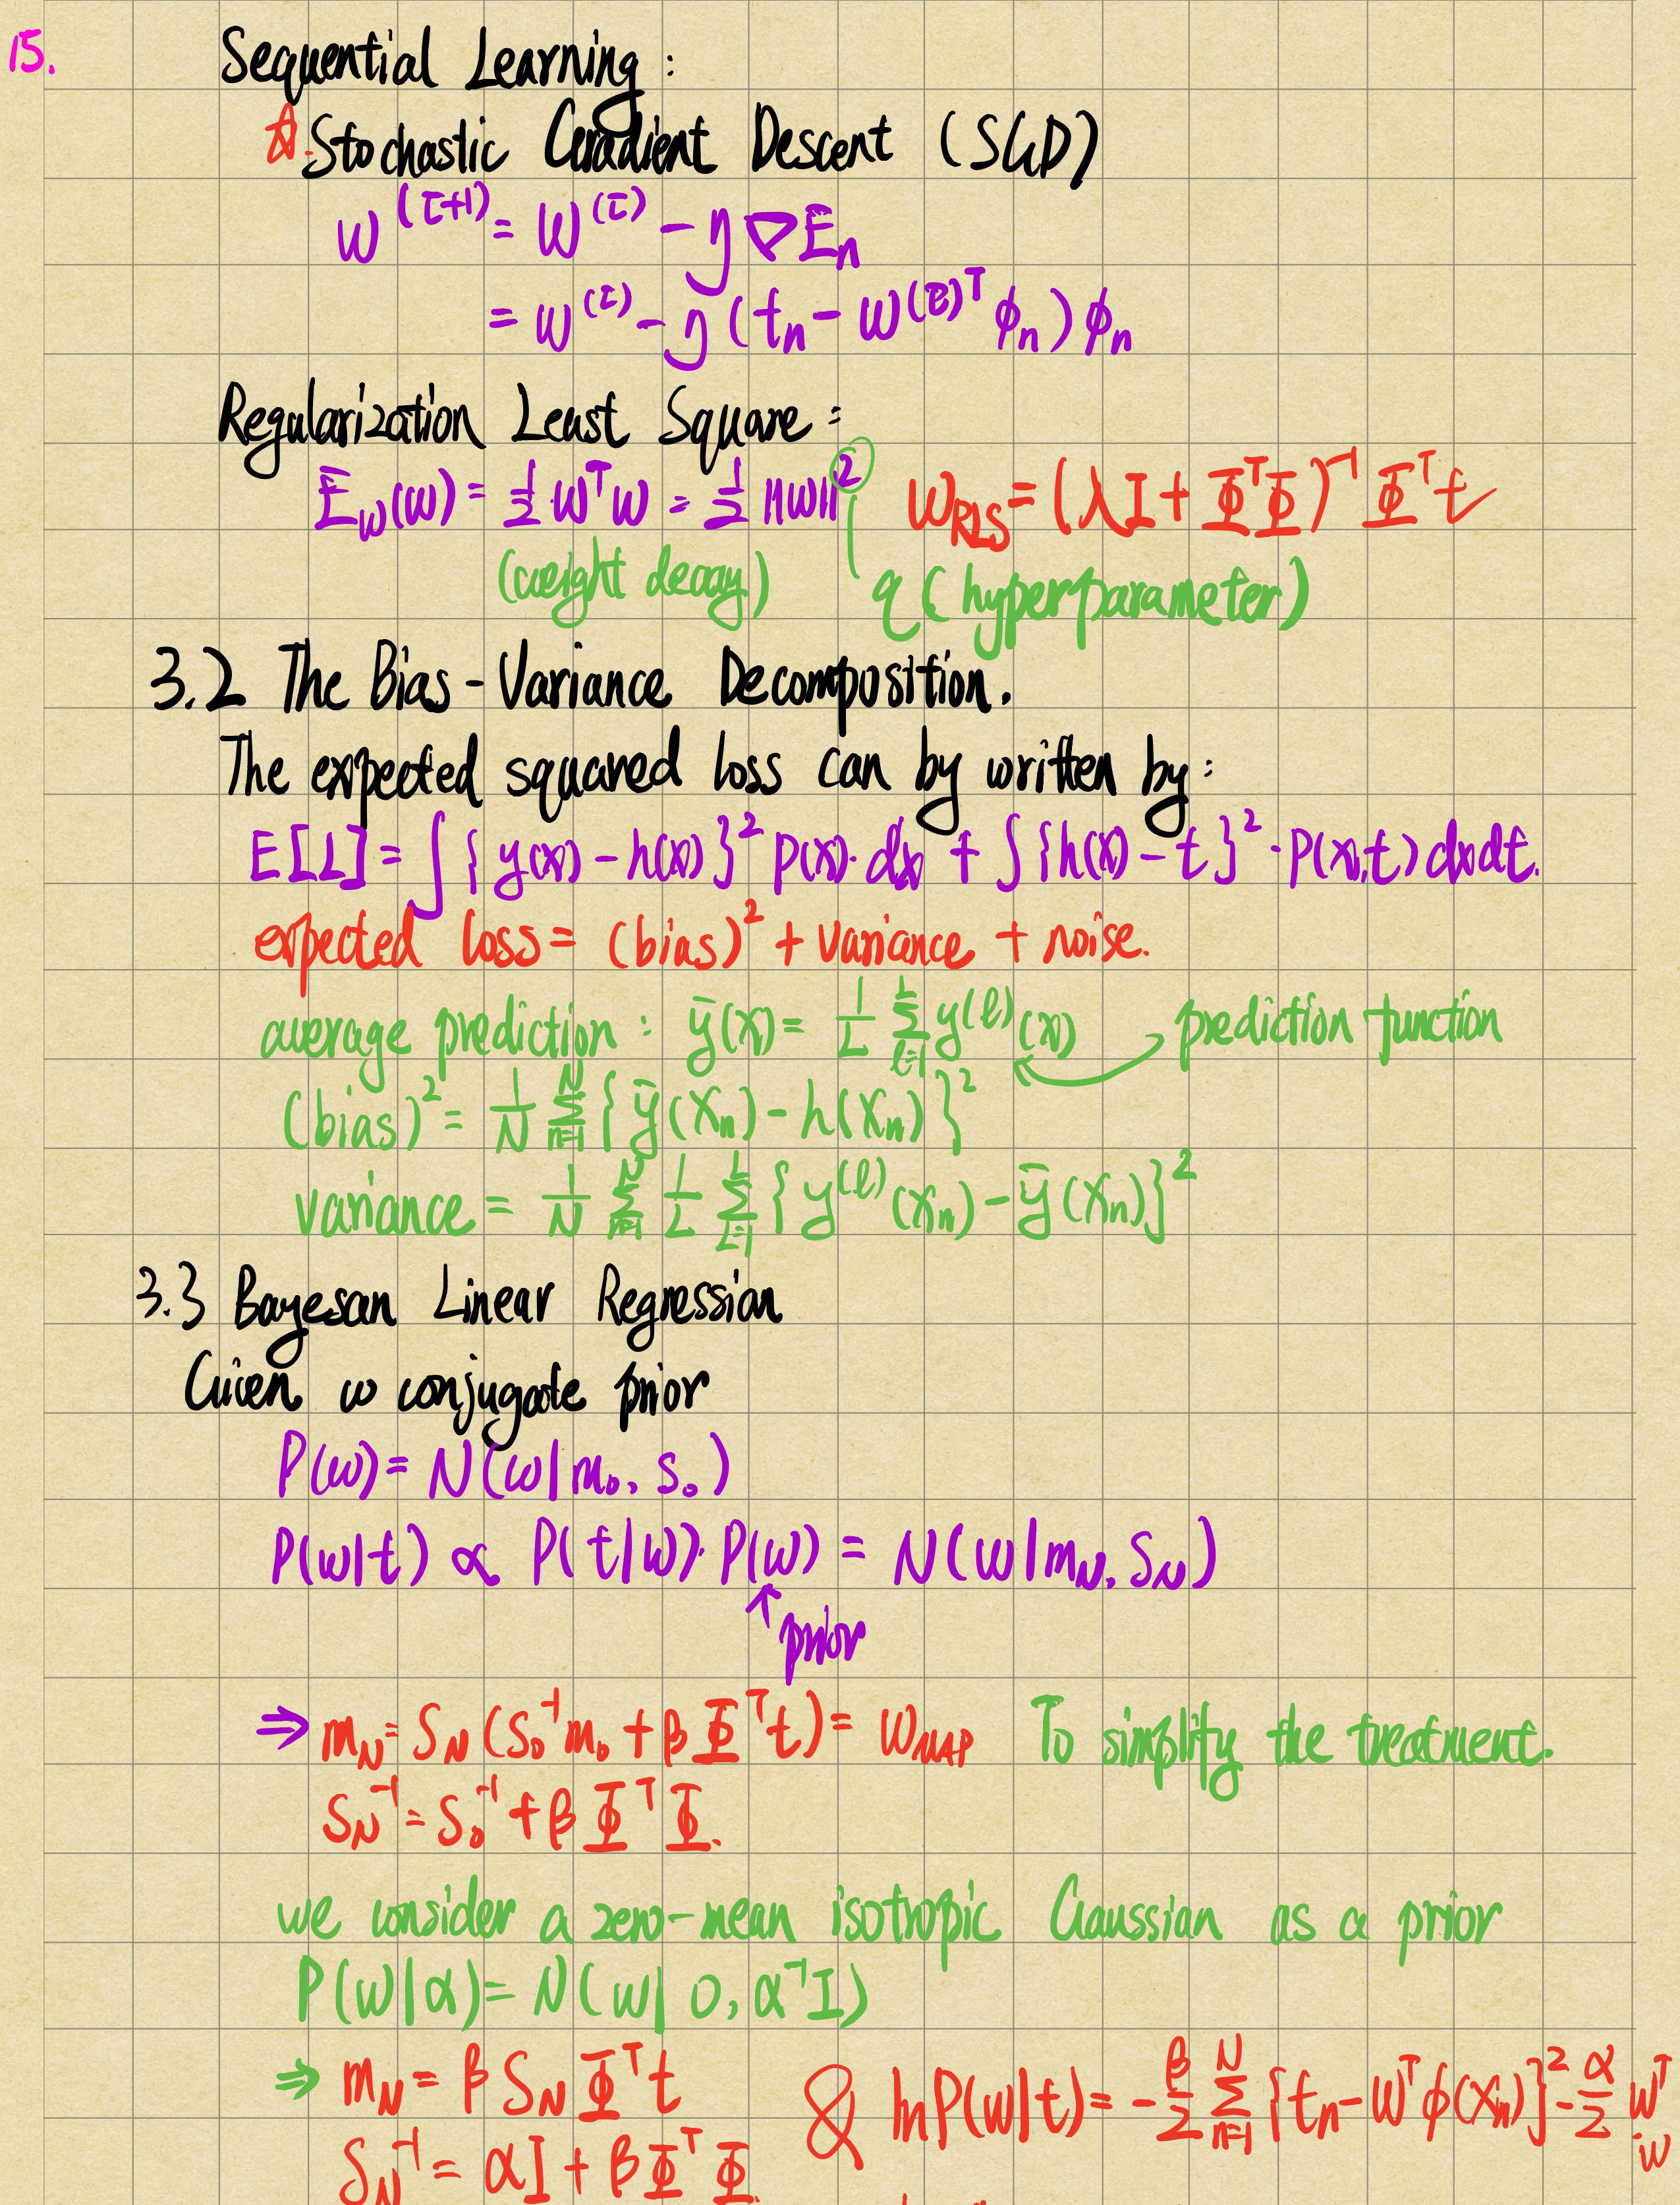 15.
Sequential Learning:
☆.Stochastic Gradient Descent (SGD)
w^(τ+1) = w^(τ) - η∇E_n
= w^(τ) - η(t_n - w^(τ)T φ_n)φ_n
Regularization Least Square:
E_w(w) = 1/2 · w^T w = 1/2 ||w||^2    w_RLS = (λI + Φ^TΦ)^-1 Φ^T t
(weight decay)    q (hyperparameter)
3.2 The Bias-Variance Decomposition.
The expected squared loss can by written by:
E[L] = ∫{y(x) - h(x)}^2 p(x)·dx + ∫{h(x) - t}^2 · P(x,t)dxdt.
expected loss = (bias)^2 + variance + noise.
average prediction: ȳ(x) = 1/L Σ_{l=1}^{L} y^(l)(x)    prediction function
(bias)^2 = 1/N Σ_{n=1}^{N} {ȳ(x_n) - h(x_n)}^2
variance = 1/N Σ_{n=1}^{N} 1/L Σ_{L=1}^{L} {y^(l)(x_n) - ȳ(x_n)}^2
3.3 Bayesan Linear Regression
Given w conjugate prior
P(w) = N(w|m_0, S_0)
P(w|t) ∝ P(t|w)·P(w) = N(w|m_N, S_N)
↑prior
⇒ m_N = S_N(S_0^-1 m_0 + βΦ^T t) = w_MAP    To simplify the treatment.
S_N^-1 = S_0^-1 + βΦ^TΦ.
we consider a zero-mean isotropic Gaussian as a prior
P(w|α) = N(w|0, α^-1 I)
⇒ m_N = βS_NΦ^T t    & lnP(w|t) = -β/2 Σ_{n=1}^{N} {t_n - w^T φ(x_n)}^2 - α/2 w^T w
S_N^-1 = αI + βΦ^TΦ.